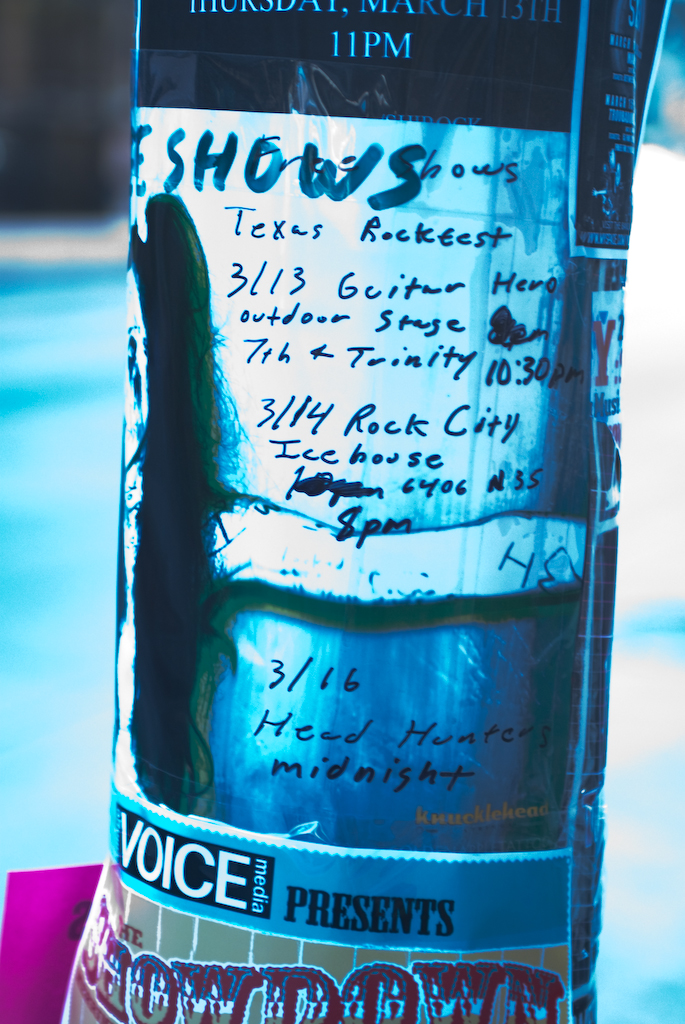 THURSDAY, MARCH 13TH
11PM
SHIROCK
E SHOWS
Free Shows
Texas Rockfest
3/13 Guitar Hero
outdoor Stage
7th & Trinity 10:30pm
3/14 Rock City
Icehouse
6406 N 35
8pm
3/16
Head Hunters
midnight
knucklehead
VOICE media PRESENTS
THE
SHOWDOWN